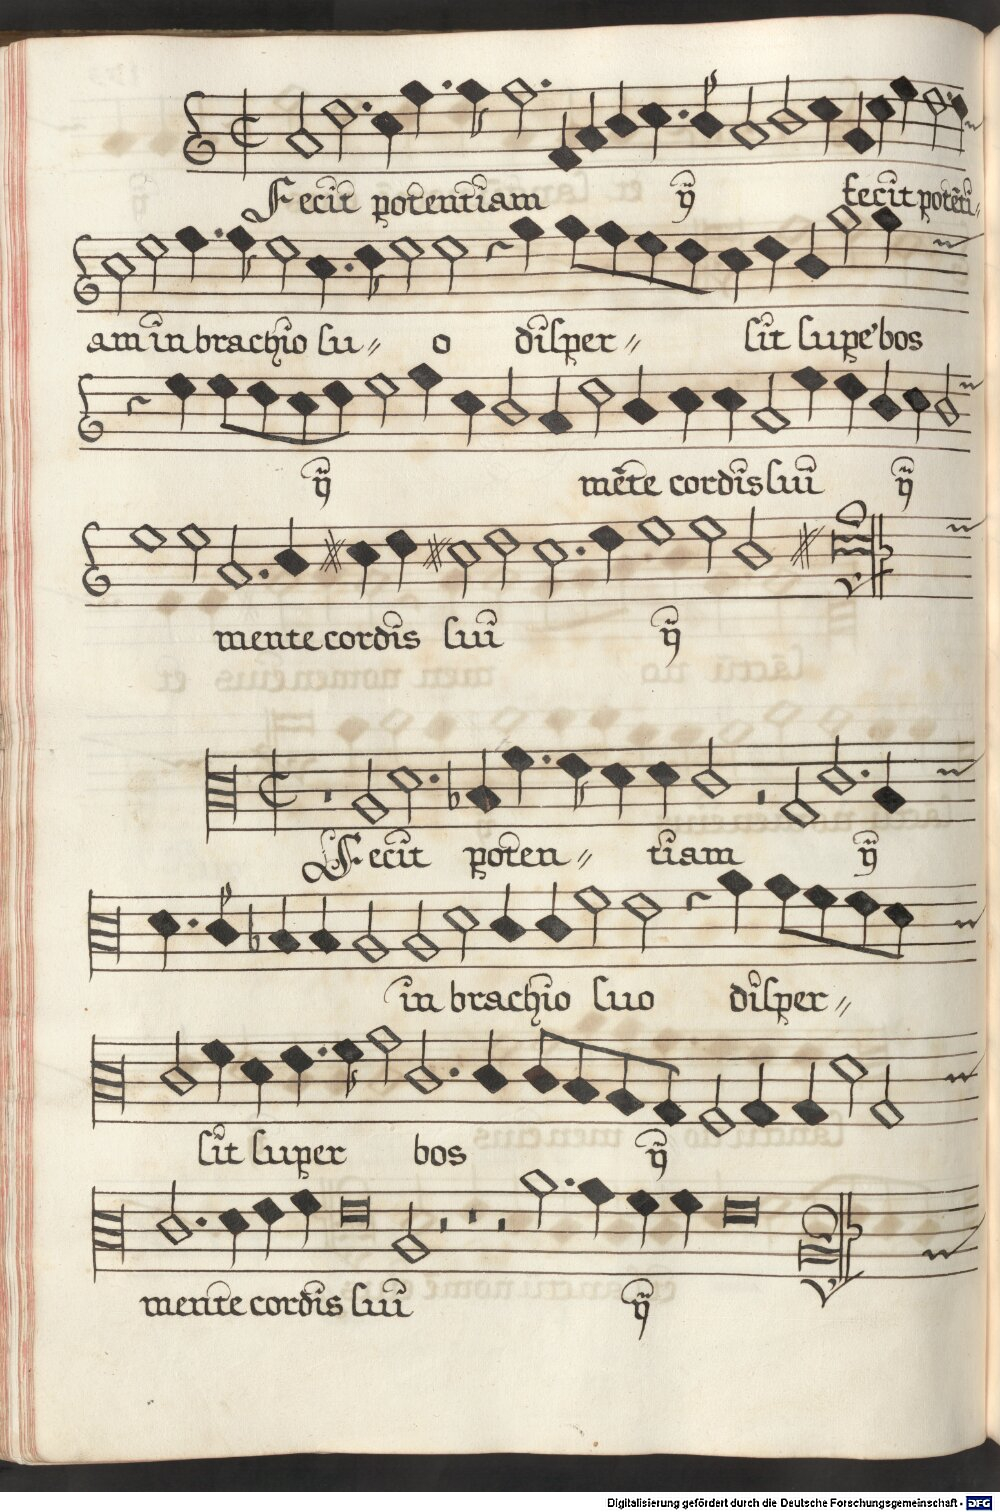 Fecit potentiam ij fecit potēti„
am in brachio su„ o disper„ sit supe'bos
ij mēte cordis sui ij
mente cordis sui ij
Fecit poten„ tiam ij
in brachio suo disper„
sit super bos ij
mente cordis sui ij
Digitalisierung gefördert durch die Deutsche Forschungsgemeinschaft - DFG